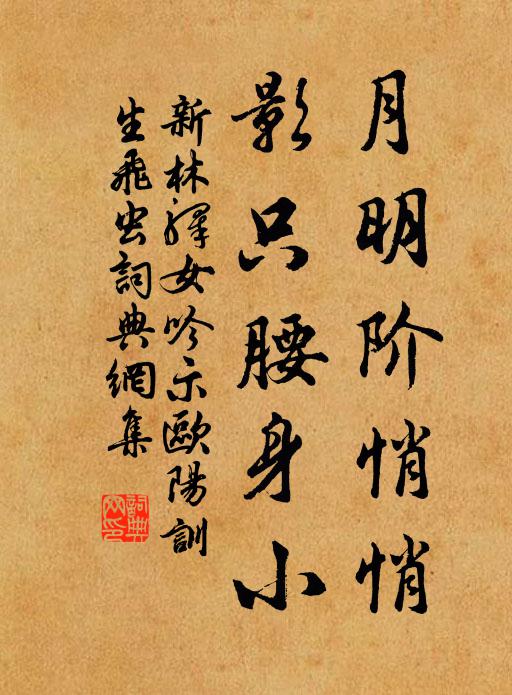 月明阶悄悄
影只腰身小
新林驛女吟示歐陽訓
生飛虫詞典網集
詞典网印